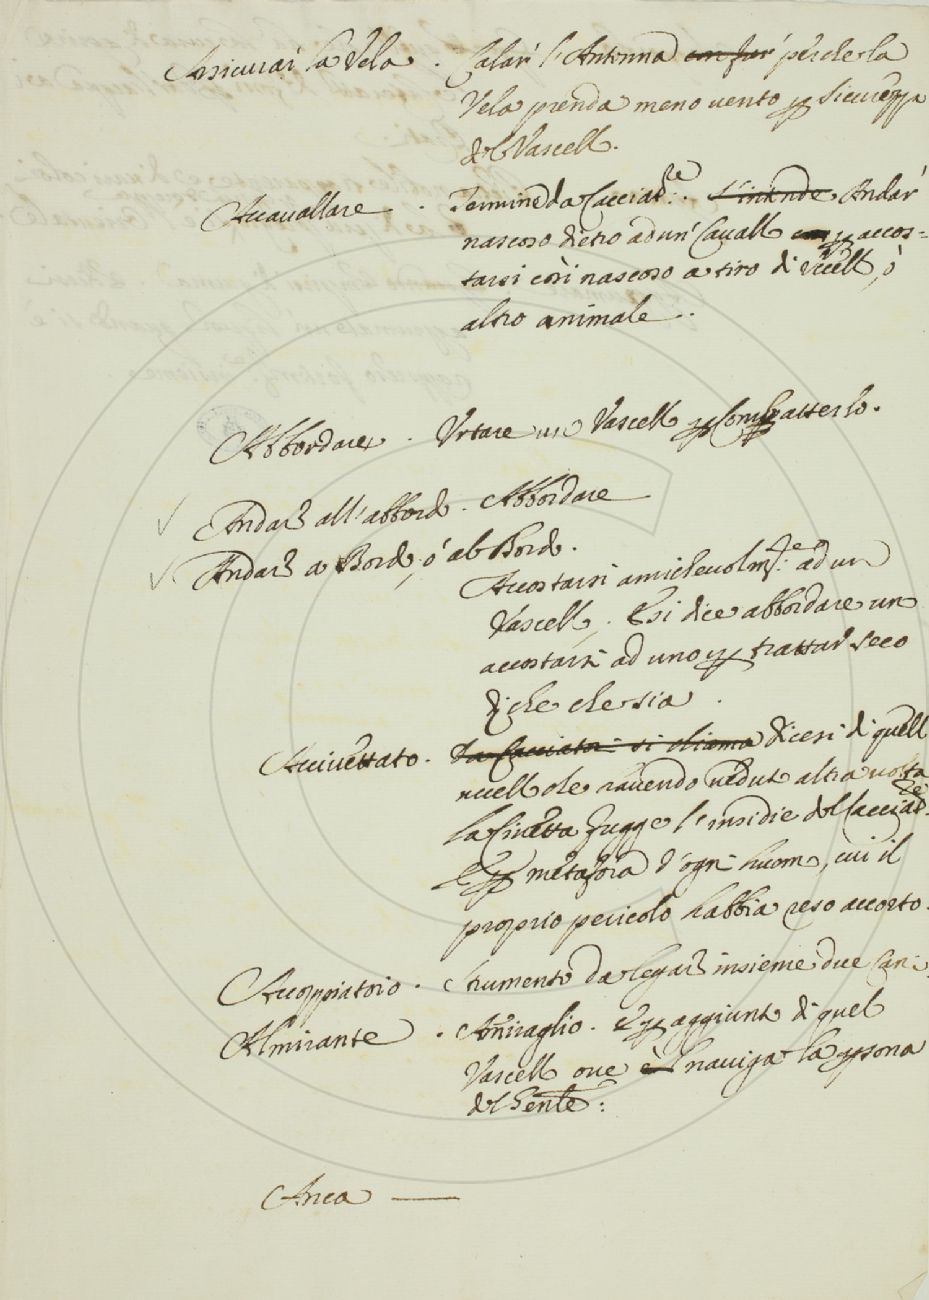 Assicurar la Vela. Calar l'Antenna con far perche la
Vela prenda meno vento per sicurezza
del Vascello.
Accavallare. Termine da Cacciatre. S'intende Andar
nascoso dietro ad un' Cavallo con per accos=
tarsi così nascoso a tiro di Vccello, ò
altro animale.
Abbordare. Vrtare un Vascello per Combatterlo.
Andare all'abbordo. Abbordare
Andare a Bordo, ó al Bordo.
Accostarsi amichevolmte: ad un
Vascello. E si dice abbordare un
accostarsi ad uno per trattar seco
di che che sia.
Accivettato. Da Cacciatori si chiama dicesi di quello
uccello che havendo veduto altra volta
la Civetta fugge l'insidie del Cacciatre.
E per metafora d'ogni huomo, cui il
proprio pericolo habbia reso accorto.
Accoppiatoio. Strumento da legare insieme due Cani.
Almirante. Amiraglio. E per aggiunto di quel
Vascello ove è naviga la persona
del Genle:
Anca —